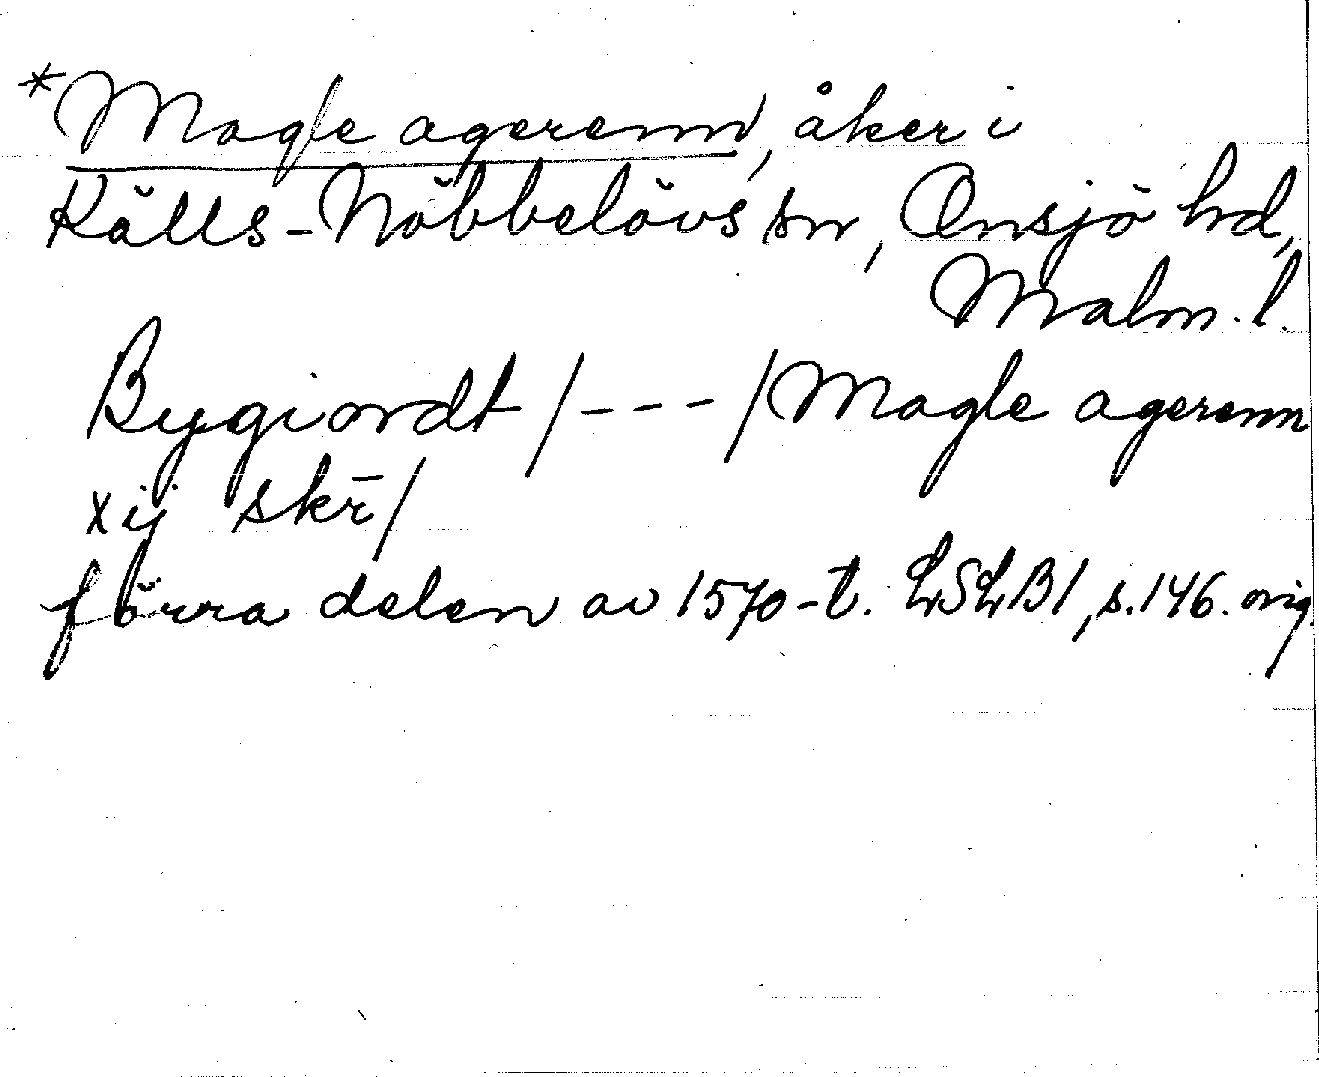 *Magle agerenn, åker i
Källs-Nöbbelövs sn, Onsjö hd,
Malm. l.
Bygiordt /---/ Magle agerenn
xij skr̄/
förra delen av 1570-t. LSLB1, s.146. orig.